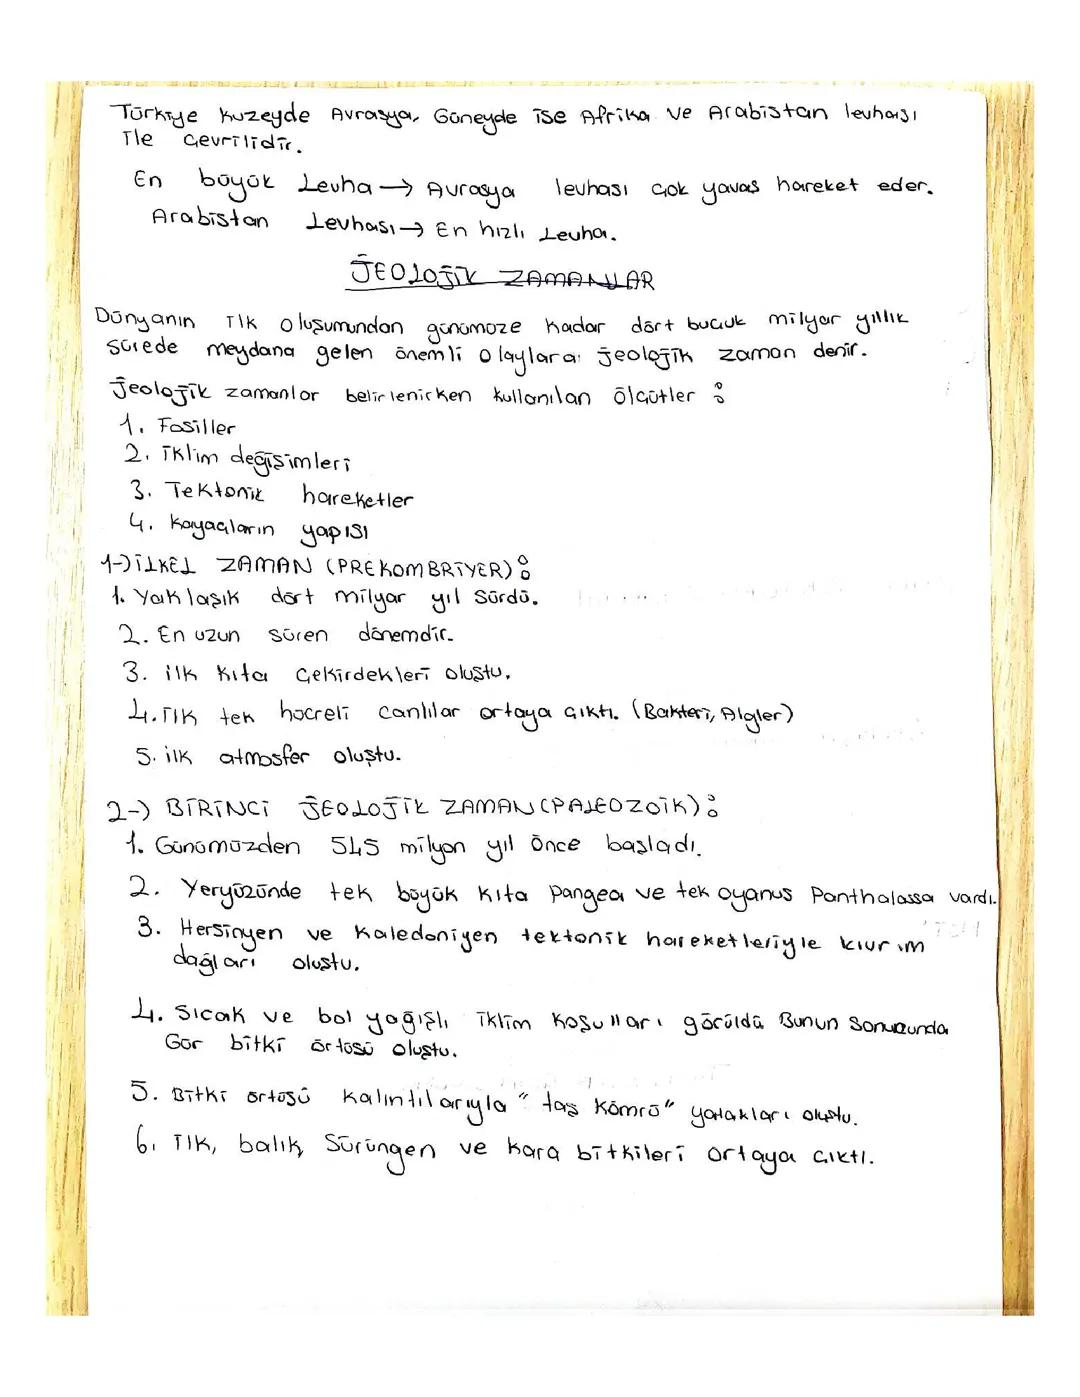 Türkiye kuzeyde Avrasya, Güneyde ise Afrika ve Arabistan levhası
ile çevrilidir.
En büyük Levha → Avrasya levhası çok yavaş hareket eder.
Arabistan Levhası → En hızlı Levha.
JEOLOJİK ZAMANLAR
Dünyanın ilk oluşumundan günümüze kadar dört buçuk milyar yıllık
sürede meydana gelen önemli olaylara jeolojik zaman denir.
Jeolojik zamanlar belirlenirken kullanılan ölçütler :
1. Fosiller
2. iklim değişimleri
3. Tektonik hareketler
4. Kayaçların yapısı
1-) İLKEL ZAMAN (PREKOMBRİYER) :
1. Yaklaşık dört milyar yıl sürdü.
2. En uzun süren dönemdir.
3. ilk kıta çekirdekleri oluştu.
4. ilk tek hücreli canlılar ortaya çıktı. (Bakteri, Algler)
5. ilk atmosfer oluştu.
2-) BİRİNCİ JEOLOJİK ZAMAN (PALEOZOİK) :
1. Günümüzden 545 milyon yıl önce başladı.
2. Yeryüzünde tek büyük kıta Pangea ve tek oyanus Panthalassa vardı.
3. Hersinyen ve Kaledoniyen tektonik hareketleriyle kıvrım
dağları oluştu.
4. Sıcak ve bol yağışlı iklim koşulları görüldü Bunun Sonucunda
Gür bitki örtüsü oluştu.
5. Bitki örtüsü kalıntılarıyla "taş kömrü" yatakları oluştu.
6. ilk, balık, Sürüngen ve kara bitkileri ortaya çıktı.